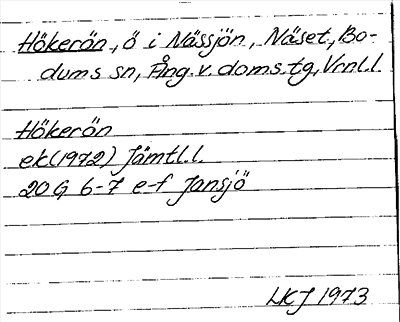 Hökerön, ö i Nässjön, Näset, Bo-
dums sn, Ång. v. doms. tg, Vrnl. l.
Hökerön
ek (1972) Jämtl. l.
20 G 6-7 e-f Jansjö
LKJ 1973